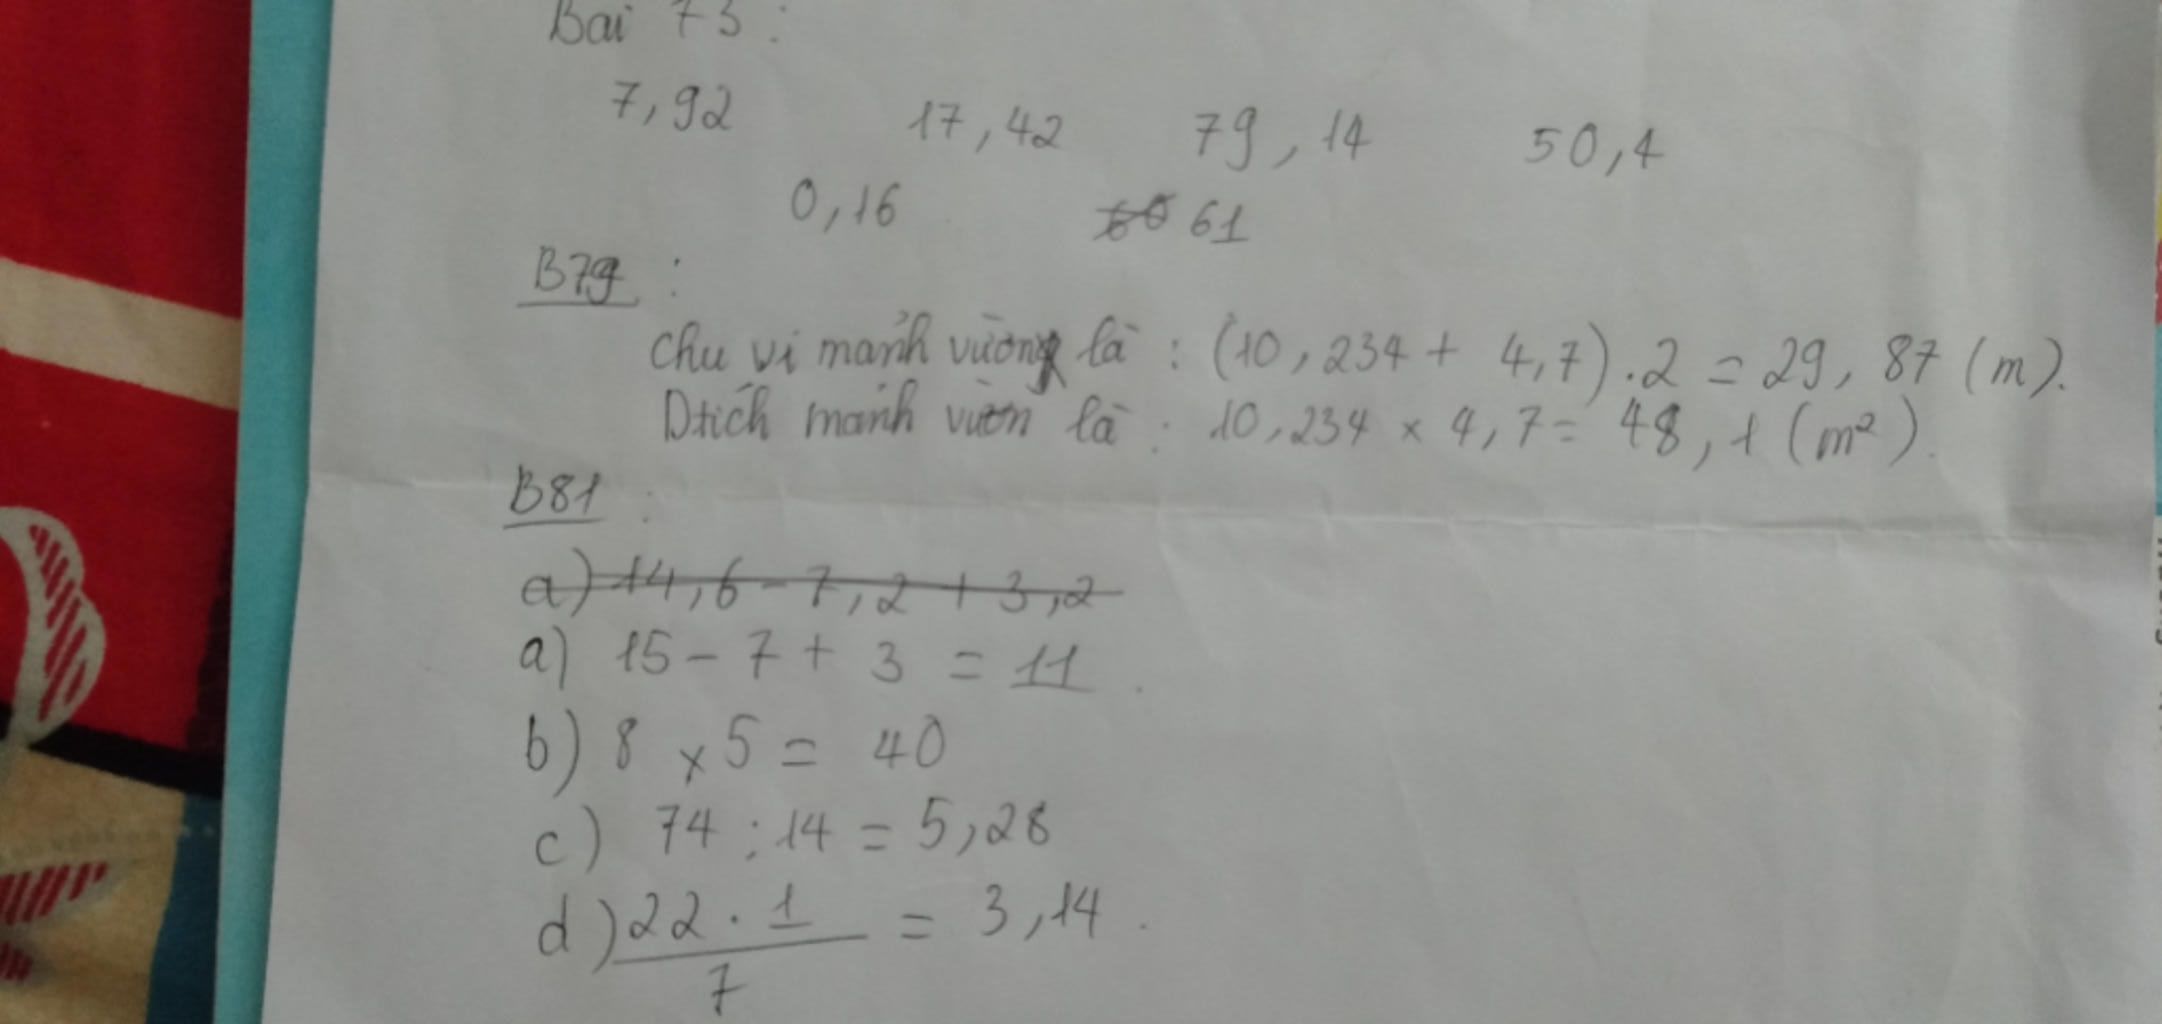 Bài 73 :
7,92 17,42 79,14 50,4
0,16 61
B79 :
Chu vi mảnh vườn là : (10,234 + 4,7).2 = 29,87 (m).
Dtích mảnh vườn là : 10,234 × 4,7 = 48,1 (m²).
B81 :
a) 14,6 - 7,2 + 3,2
a) 15 - 7 + 3 = 11.
b) 8 × 5 = 40
c) 74 : 14 = 5,28
d) 22 . 1 = 3,14.
7